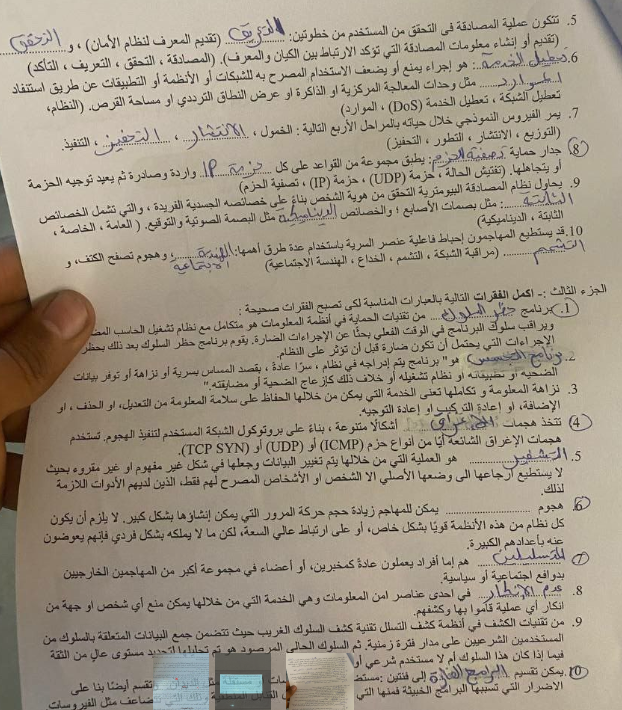 5. تتكون عملية المصادقة في التحقق من المستخدم من خطوتين: التعريف (تقديم المعرف لنظام الأمان) ، و التحقق
(تقديم أو إنشاء معلومات المصادقة التي تؤكد الارتباط بين الكيان والمعرف). (المصادقة ، التحقق ، التعريف ، التأكد)
6. تعطيل الخدمة: هو إجراء يمنع أو يضعف الاستخدام المصرح به للشبكات أو الأنظمة أو التطبيقات عن طريق استنفاد
الموارد مثل وحدات المعالجة المركزية أو الذاكرة او عرض النطاق الترددي او مساحة القرص. (النظام،
تعطيل الشبكة ، تعطيل الخدمة (DoS) ، الموارد)
7. يمر الفيروس النموذجي خلال حياته بالمراحل الأربع التالية : الخمول ، الانتشار ، التحفيز ، التنفيذ.
(التوزيع ، الانتشار ، التطور ، التحفيز)
8. جدار حماية تصفية الحزم: يطبق مجموعة من القواعد على كل حزمة IP واردة وصادرة ثم يعيد توجيه الحزمة
أو يتجاهلها. (تفتيش الحالة ، حزمة (UDP) ، حزمة (IP) ، تصفية الحزم)
9. يحاول نظام المصادقة البيومترية التحقق من هوية الشخص بناءً على خصائصه الجسدية الفريدة ، والتي تشمل الخصائص
الثابتة : مثل بصمات الأصابع ؛ والخصائص الديناميكية مثل البصمة الصوتية والتوقيع. ( العامة ، الخاصة ،
الثابتة ، الديناميكية)
10. قد يستطيع المهاجمون إحباط فاعلية عنصر السرية باستخدام عدة طرق أهمها: الهندسة الاجتماعية ، وهجوم تصفح الكتف، و
التشمم (مراقبة الشبكة ، التشمم ، الخداع ، الهندسة الاجتماعية)
الجزء الثالث :- اكمل الفقرات التالية بالعبارات المناسبة لكي تصبح الفقرات صحيحة :
1. برنامج حظر السلوك من تقنيات الحماية في أنظمة المعلومات هو متكامل مع نظام تشغيل الحاسب
ويراقب سلوك البرنامج في الوقت الفعلي بحثًا عن الإجراءات الضارة. يقوم برنامج حظر السلوك بعد ذلك بحظر
الإجراءات التي يحتمل أن تكون ضارة قبل أن تؤثر على النظام.
2. برنامج التجسس هو" برنامج يتم إدراجه في نظام ، سرًا عادةً ، بقصد المساس بسرية أو نزاهة أو توفر بيانات
الضحية أو تطبيقاته أو نظام تشغيله أو خلاف ذلك كإزعاج الضحية أو مضايقته."
3. نزاهة المعلومة و تكاملها تعنى الخدمة التي يمكن من خلالها الحفاظ على سلامة المعلومة من التعديل، او الحذف ، او
الإضافة، او إعادة التركيب او إعادة التوجيه.
4. تتخذ هجمات الإغراق أشكالًا متنوعة ، بناءً على بروتوكول الشبكة المستخدم لتنفيذ الهجوم. تستخدم
هجمات الإغراق الشائعة أيًا من أنواع حزم (ICMP) أو (UDP) أو (TCP SYN).
5. التشفير هو العملية التي من خلالها يتم تغيير البيانات وجعلها في شكل غير مفهوم او غير مقروء بحيث
لا يستطيع ارجاعها الى وضعها الأصلي الا الشخص او الأشخاص المصرح لهم فقط، الذين لديهم الأدوات اللازمة
لذلك.
6. هجوم ........ يمكن للمهاجم زيادة حجم حركة المرور التي يمكن إنشاؤها بشكل كبير. لا يلزم أن يكون
كل نظام من هذه الأنظمة قويًا بشكل خاص، أو على ارتباط عالي السعة، لكن ما لا يملكه بشكل فردي فإنهم يعوضون
عنه بأعدادهم الكبيرة.
7. المتسللين هم إما أفراد يعملون عادةً كمخبرين، أو أعضاء في مجموعة أكبر من المهاجمين الخارجيين
بدوافع اجتماعية أو سياسية.
8. عدم الإنكار في احدى عناصر امن المعلومات وهي الخدمة التي من خلالها يمكن منع أي شخص او جهة من
انكار أي عملية قاموا بها وكشفهم.
9. من تقنيات الكشف في أنظمة كشف التسلل تقنية كشف السلوك الغريب حيث تتضمن جمع البيانات المتعلقة بالسلوك من
المستخدمين الشرعيين على مدار فترة زمنية. ثم السلوك الحالي المرصود هو تم تحليلها لتحديد مستوى عالٍ من الثقة
فيما إذا كان هذا السلوك أم لا مستخدم شرعي أو
10. يمكن تقسيم البرامج الضارة إلى فئتين : تقسم أيضًا بنا على
الاضرار التي تسببها البرامج الخبيثة فمنها التي تتضاعف مثل الفيروسات